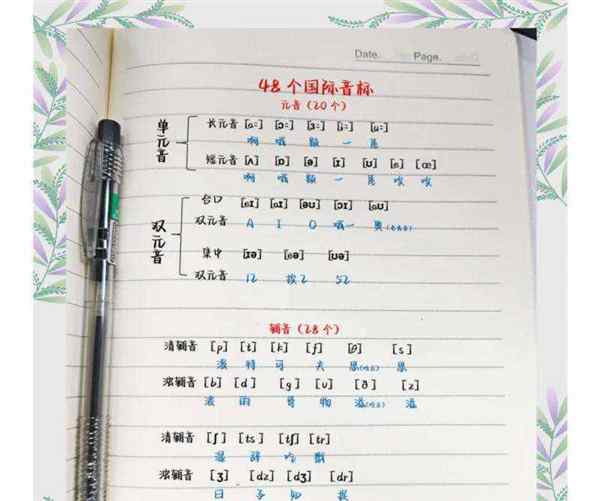 Date. Page.
48个国际音标
元音(20个)
单元音
长元音 [ɑː] [ɔː] [ɜː] [iː] [uː]
啊 哦 额 一 屋
短元音 [ʌ] [ɒ] [ə] [ɪ] [ʊ] [e] [æ]
啊 哦 额 一 屋 唉 唉
双元音
合口 [eɪ] [aɪ] [əʊ] [ɔɪ] [aʊ]
双元音 A I O 哦一 奥
集中 [ɪə] [eə] [ʊə]
双元音 12 挨2 52
辅音(28个)
清辅音 [p] [t] [k] [f] [θ] [s]
泼 特 可 夫 思(咬舌) 思
浊辅音 [b] [d] [g] [v] [ð] [z]
波 的 哥 物 滋(咬舌) 滋
清辅音 [ʃ] [ts] [tʃ] [tr]
湿 辞 吃 戳
浊辅音 [ʒ] [dz] [dʒ] [dr]
日 子 知